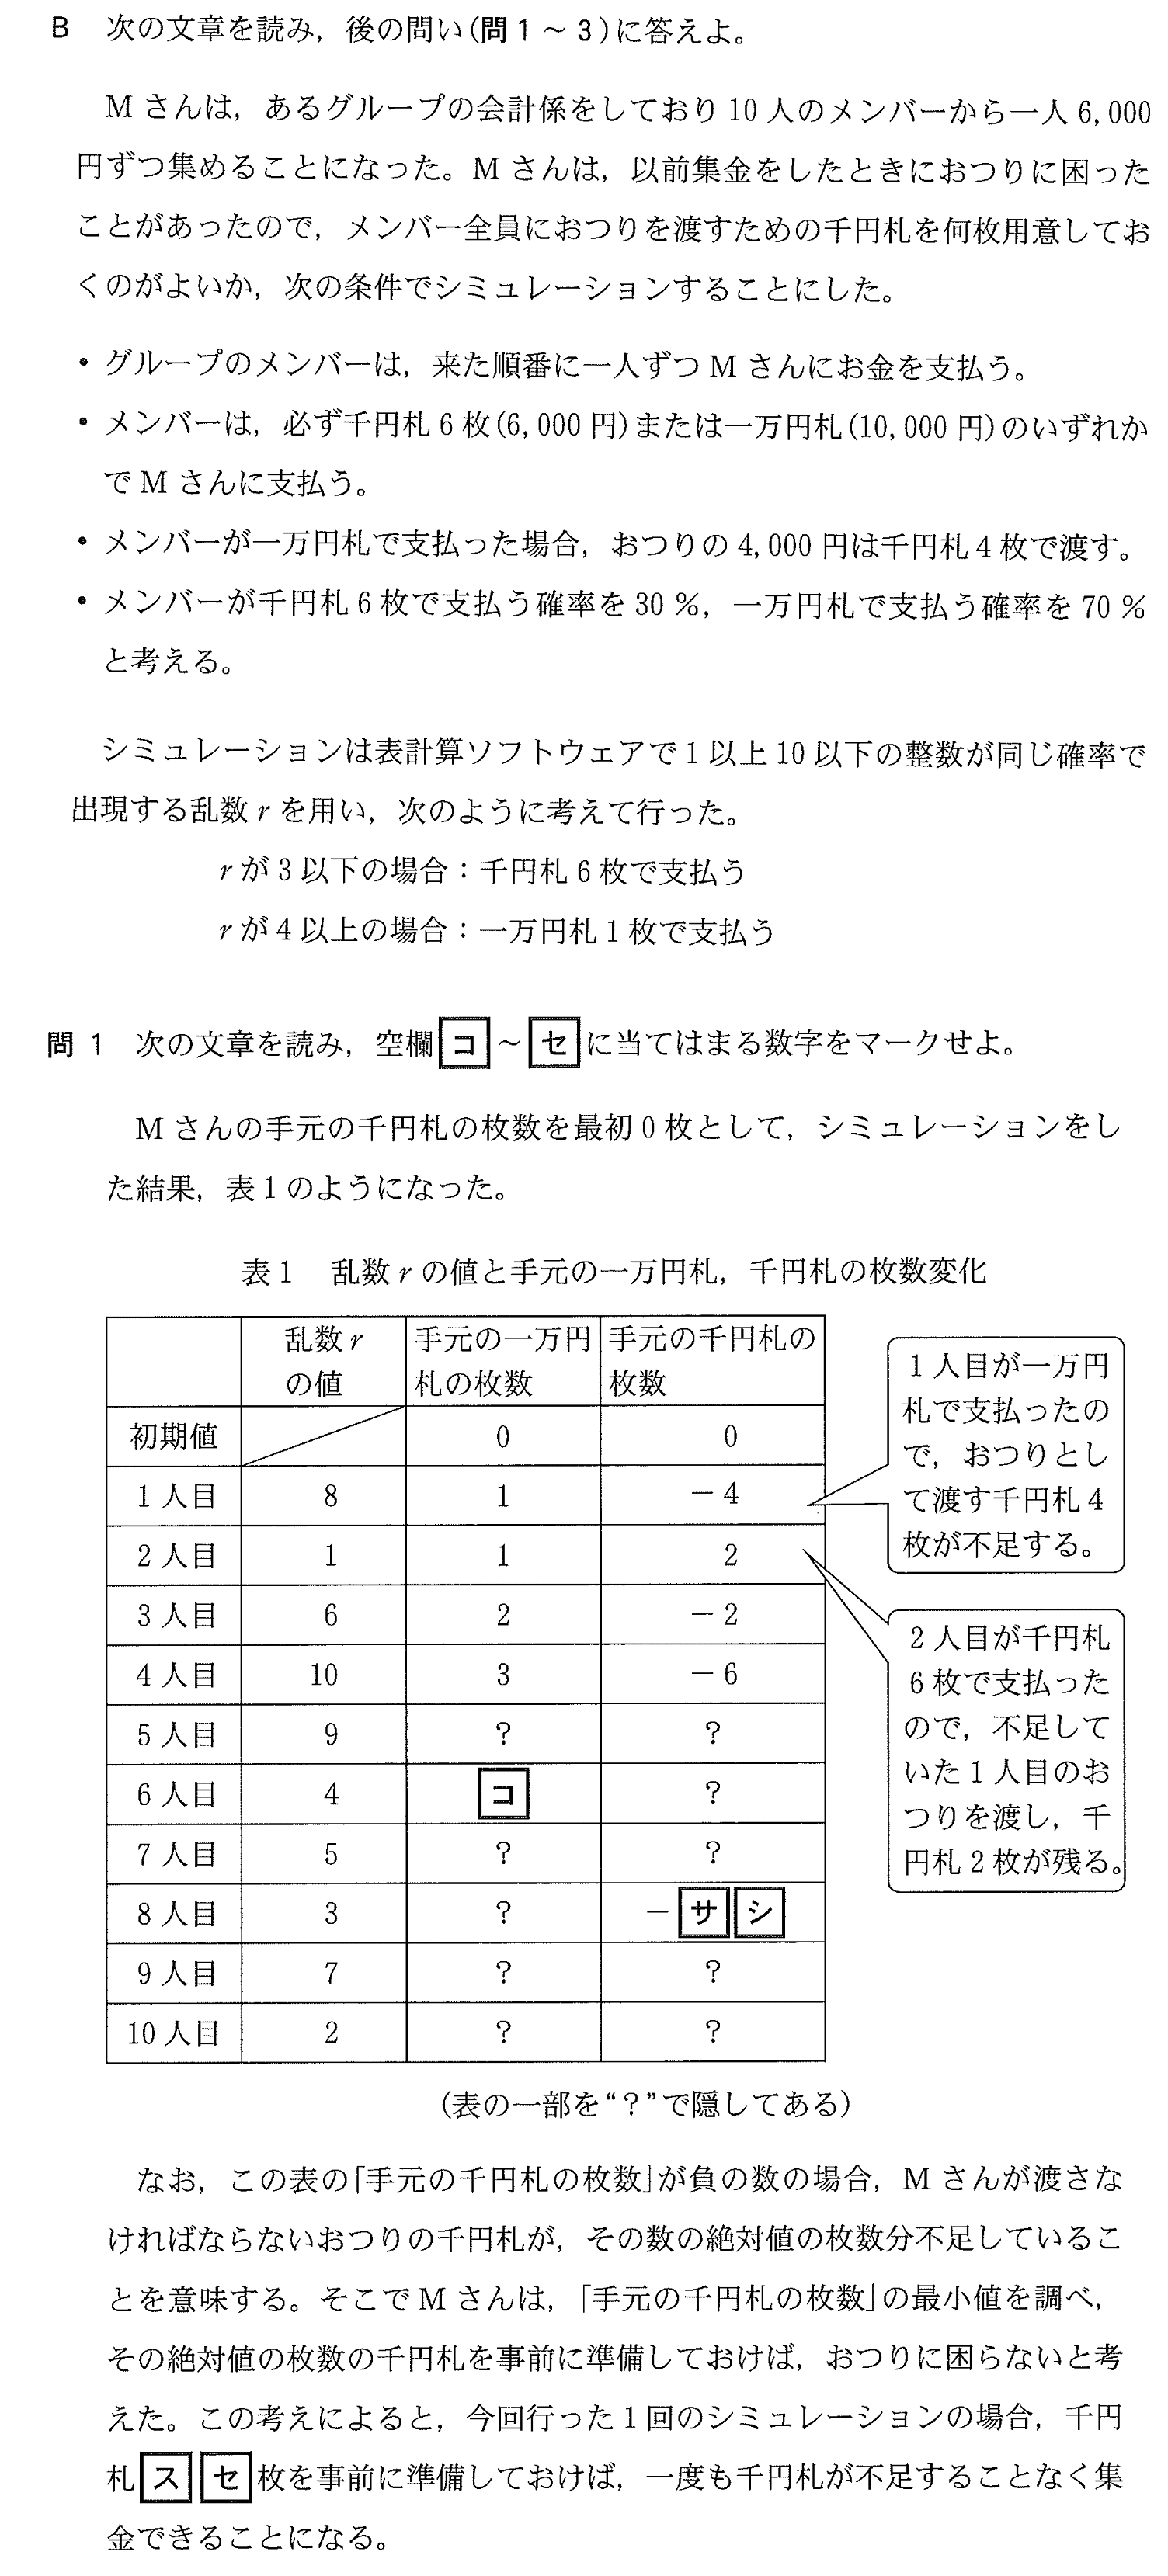 B 次の文章を読み，後の問い(問1～3)に答えよ。
Mさんは，あるグループの会計係をしており10人のメンバーから一人6,000
円ずつ集めることになった。Mさんは，以前集金をしたときにおつりに困った
ことがあったので，メンバー全員におつりを渡すための千円札を何枚用意してお
くのがよいか，次の条件でシミュレーションすることにした。
・グループのメンバーは，来た順番に一人ずつMさんにお金を支払う。
・メンバーは，必ず千円札6枚(6,000円)または一万円札(10,000円)のいずれか
でMさんに支払う。
・メンバーが一万円札で支払った場合，おつりの4,000円は千円札4枚で渡す。
・メンバーが千円札6枚で支払う確率を30％，一万円札で支払う確率を70％
と考える。
シミュレーションは表計算ソフトウェアで1以上10以下の整数が同じ確率で
出現する乱数rを用い，次のように考えて行った。
rが3以下の場合：千円札6枚で支払う
rが4以上の場合：一万円札1枚で支払う
問1 次の文章を読み，空欄コ～セに当てはまる数字をマークせよ。
Mさんの手元の千円札の枚数を最初0枚として，シミュレーションをし
た結果，表1のようになった。
表1 乱数rの値と手元の一万円札，千円札の枚数変化
乱数r
の値
手元の一万円
札の枚数
手元の千円札の
枚数
初期値 0 0
1人目 8 1 －4
2人目 1 1 2
3人目 6 2 －2
4人目 10 3 －6
5人目 9 ？ ？
6人目 4 コ ？
7人目 5 ？ ？
8人目 3 ？ －サシ
9人目 7 ？ ？
10人目 2 ？ ？
1人目が一万円
札で支払ったの
で，おつりとし
て渡す千円札4
枚が不足する。
2人目が千円札
6枚で支払った
ので，不足して
いた1人目のお
つりを渡し，千
円札2枚が残る。
(表の一部を“？”で隠してある)
なお，この表の「手元の千円札の枚数」が負の数の場合，Mさんが渡さな
ければならないおつりの千円札が，その数の絶対値の枚数分不足しているこ
とを意味する。そこでMさんは，「手元の千円札の枚数」の最小値を調べ，
その絶対値の枚数の千円札を事前に準備しておけば，おつりに困らないと考
えた。この考えによると，今回行った1回のシミュレーションの場合，千円
札スセ枚を事前に準備しておけば，一度も千円札が不足することなく集
金できることになる。